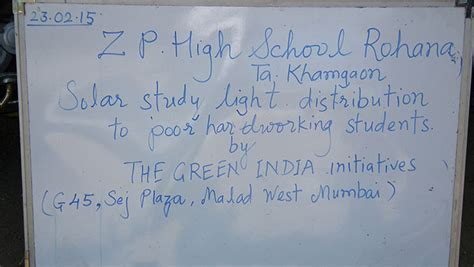 23.02.15
Z P. High School Rohana
Ta. Khamgaon
Solar study light distribution
to poor hardworking students.
by
THE GREEN INDIA initiatives
(G45, Sej Plaza, Malad West Mumbai)